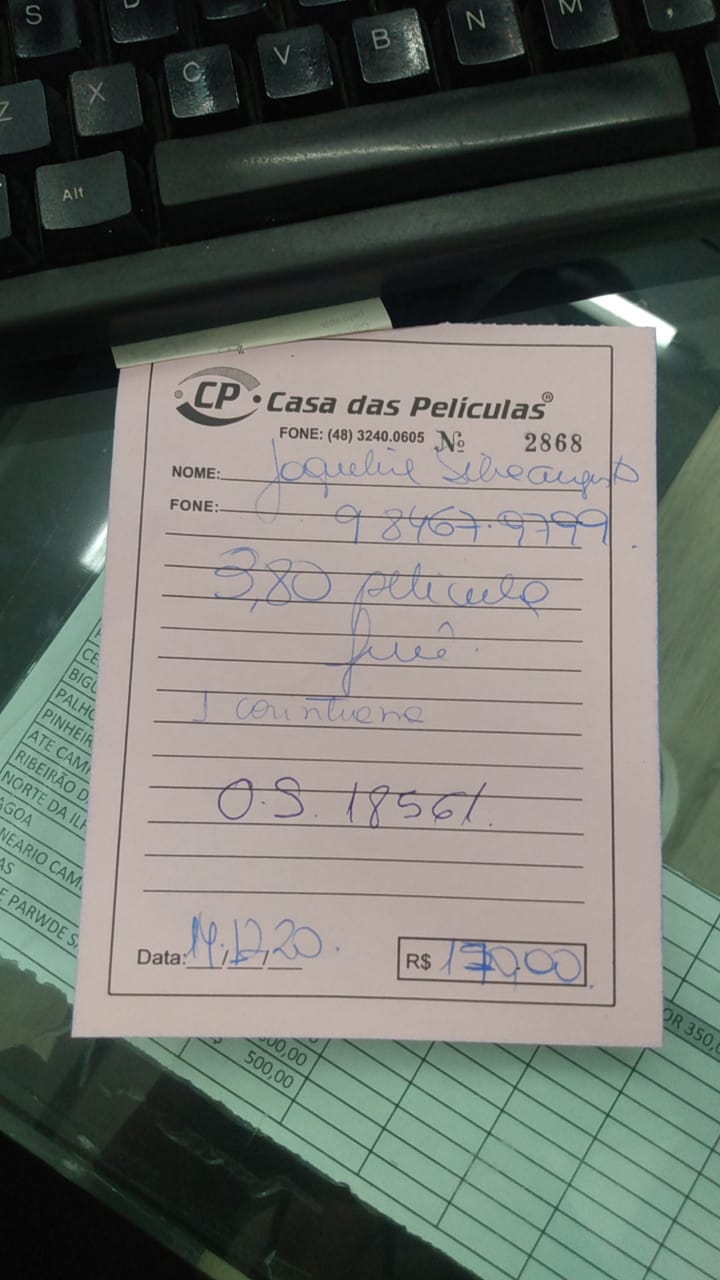 S
N
M
,
Z
X
C
V
B
Alt
CP • Casa das Películas®
FONE: (48) 3240.0605 Nº 2868
NOME: Jaqueline
FONE: 9 8467-9799
3,80 película
fumê.
1
O.S. 18561.
Data: 14/12/20. R$ 00
CE
BIGU
PALHO
PINHEIR
ATE CAM
RIBEIRÃO D
NORTE DA IL
AGOA
NEARIO CAM
AS
E PARWDE S
OR 350,0
500,00